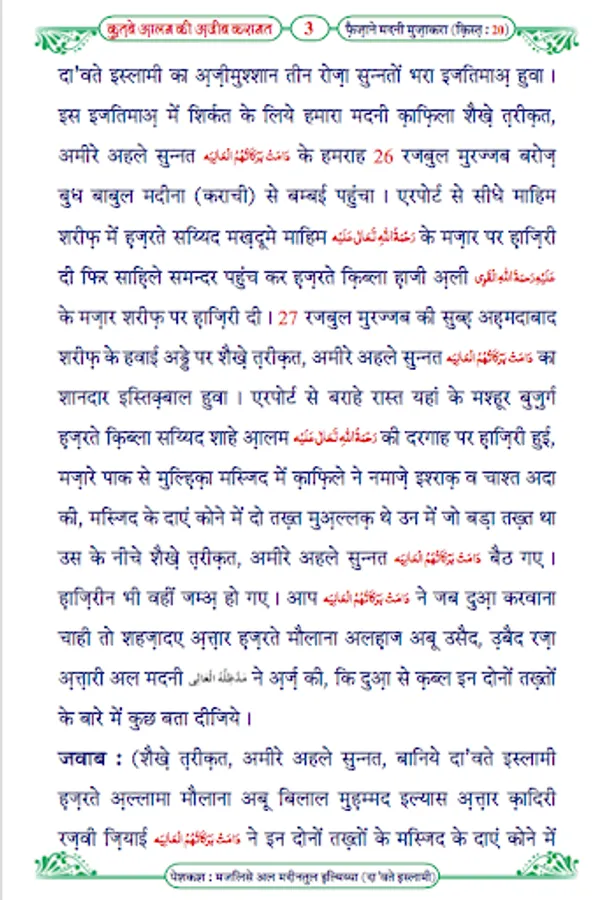 कुत्बे आलम की अजीब करामत 3 फ़ैज़ाने मदनी मुज़ाकरा (क़िस्त : 20)
दा'वते इस्लामी का अज़ीमुश्शान तीन रोज़ा सुन्नतों भरा इजतिमाअ़ हुवा ।
इस इजतिमाअ़ में शिर्कत के लिये हमारा मदनी क़ाफ़िला शैख़े त़रीक़त,
अमीरे अहले सुन्नत دَامَتْ بَرَكَاتُهُمُ الْعَالِيَه के हमराह 26 रजबुल मुरज्जब बरोज़
बुध बाबुल मदीना (कराची) से बम्बई पहुंचा । एरपोर्ट से सीधे माहिम
शरीफ़ में ह़ज़रते सय्यिद मख़्दूमे माहिम رَحْمَةُ اللهِ تَعَالٰى عَلَيْه के मज़ार पर ह़ाज़िरी
दी फिर साहिले समन्दर पहुंच कर ह़ज़रते क़िब्ला हाजी अ़ली عَلَيْهِ رَحْمَةُ اللهِ الْقَوِى
के मज़ार शरीफ़ पर ह़ाज़िरी दी । 27 रजबुल मुरज्जब की सुब्ह़ अह़मदाबाद
शरीफ़ के हवाई अड्डे पर शैख़े त़रीक़त, अमीरे अहले सुन्नत دَامَتْ بَرَكَاتُهُمُ الْعَالِيَه का
शानदार इस्तिक़्बाल हुवा । एरपोर्ट से बराहे रास्त यहां के मश्हूर बुज़ुर्ग
ह़ज़रते क़िब्ला सय्यिद शाहे आ़लम رَحْمَةُ اللهِ تَعَالٰى عَلَيْه की दरगाह पर ह़ाज़िरी हुई,
मज़ारे पाक से मुल्ह़िक़ा मस्जिद में क़ाफ़िले ने नमाज़े इश्राक़ व चाश्त अदा
की, मस्जिद के दाएं कोने में दो तख़्त मुअ़ल्लक़ थे उन में जो बड़ा तख़्त था
उस के नीचे शैख़े त़रीक़त, अमीरे अहले सुन्नत دَامَتْ بَرَكَاتُهُمُ الْعَالِيَه बैठ गए ।
ह़ाज़िरीन भी वहीं जम्अ़ हो गए । आप دَامَتْ بَرَكَاتُهُمُ الْعَالِيَه ने जब दुआ़ करवाना
चाही तो शहज़ादए अ़त्त़ार ह़ज़रते मौलाना अलह़ाज अबू उसैद, उ़बैद रज़ा
अ़त्त़ारी अल मदनी مُدَّظِلُّهُ الْعَالِى ने अ़र्ज़ की, कि दुआ़ से क़ब्ल इन दोनों तख़्तों
के बारे में कुछ बता दीजिये ।
जवाब : (शैख़े त़रीक़त, अमीरे अहले सुन्नत, बानिये दा'वते इस्लामी
ह़ज़रते अ़ल्लामा मौलाना अबू बिलाल मुह़म्मद इल्यास अ़त्त़ार क़ादिरी
रज़वी ज़ियाई دَامَتْ بَرَكَاتُهُمُ الْعَالِيَه ने इन दोनों तख़्तों के मस्जिद के दाएं कोने में
पेशकश : मजलिसे अल मदीनतुल इ़ल्मिय्या (दा'वते इस्लामी)